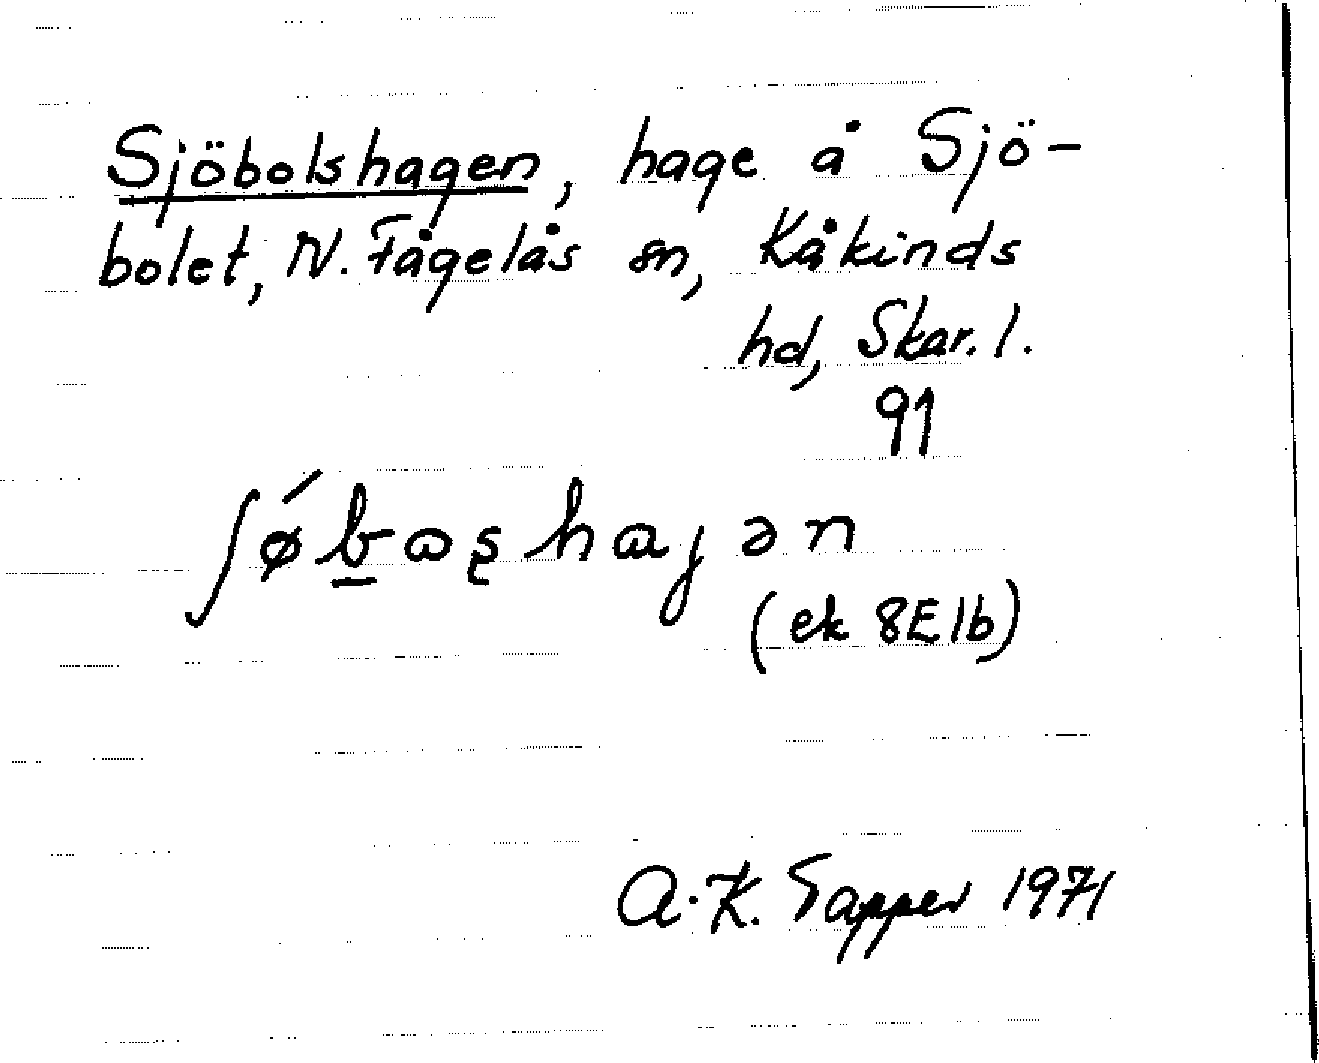 Sjöbolshagen, hage å Sjö-
bolet, N. Fågelås sn, Kåkinds
hd, Skar. l.
91
ʃǿbɷʂhɑɟən
(ek 8E1b)
A.K. Tapper 1971